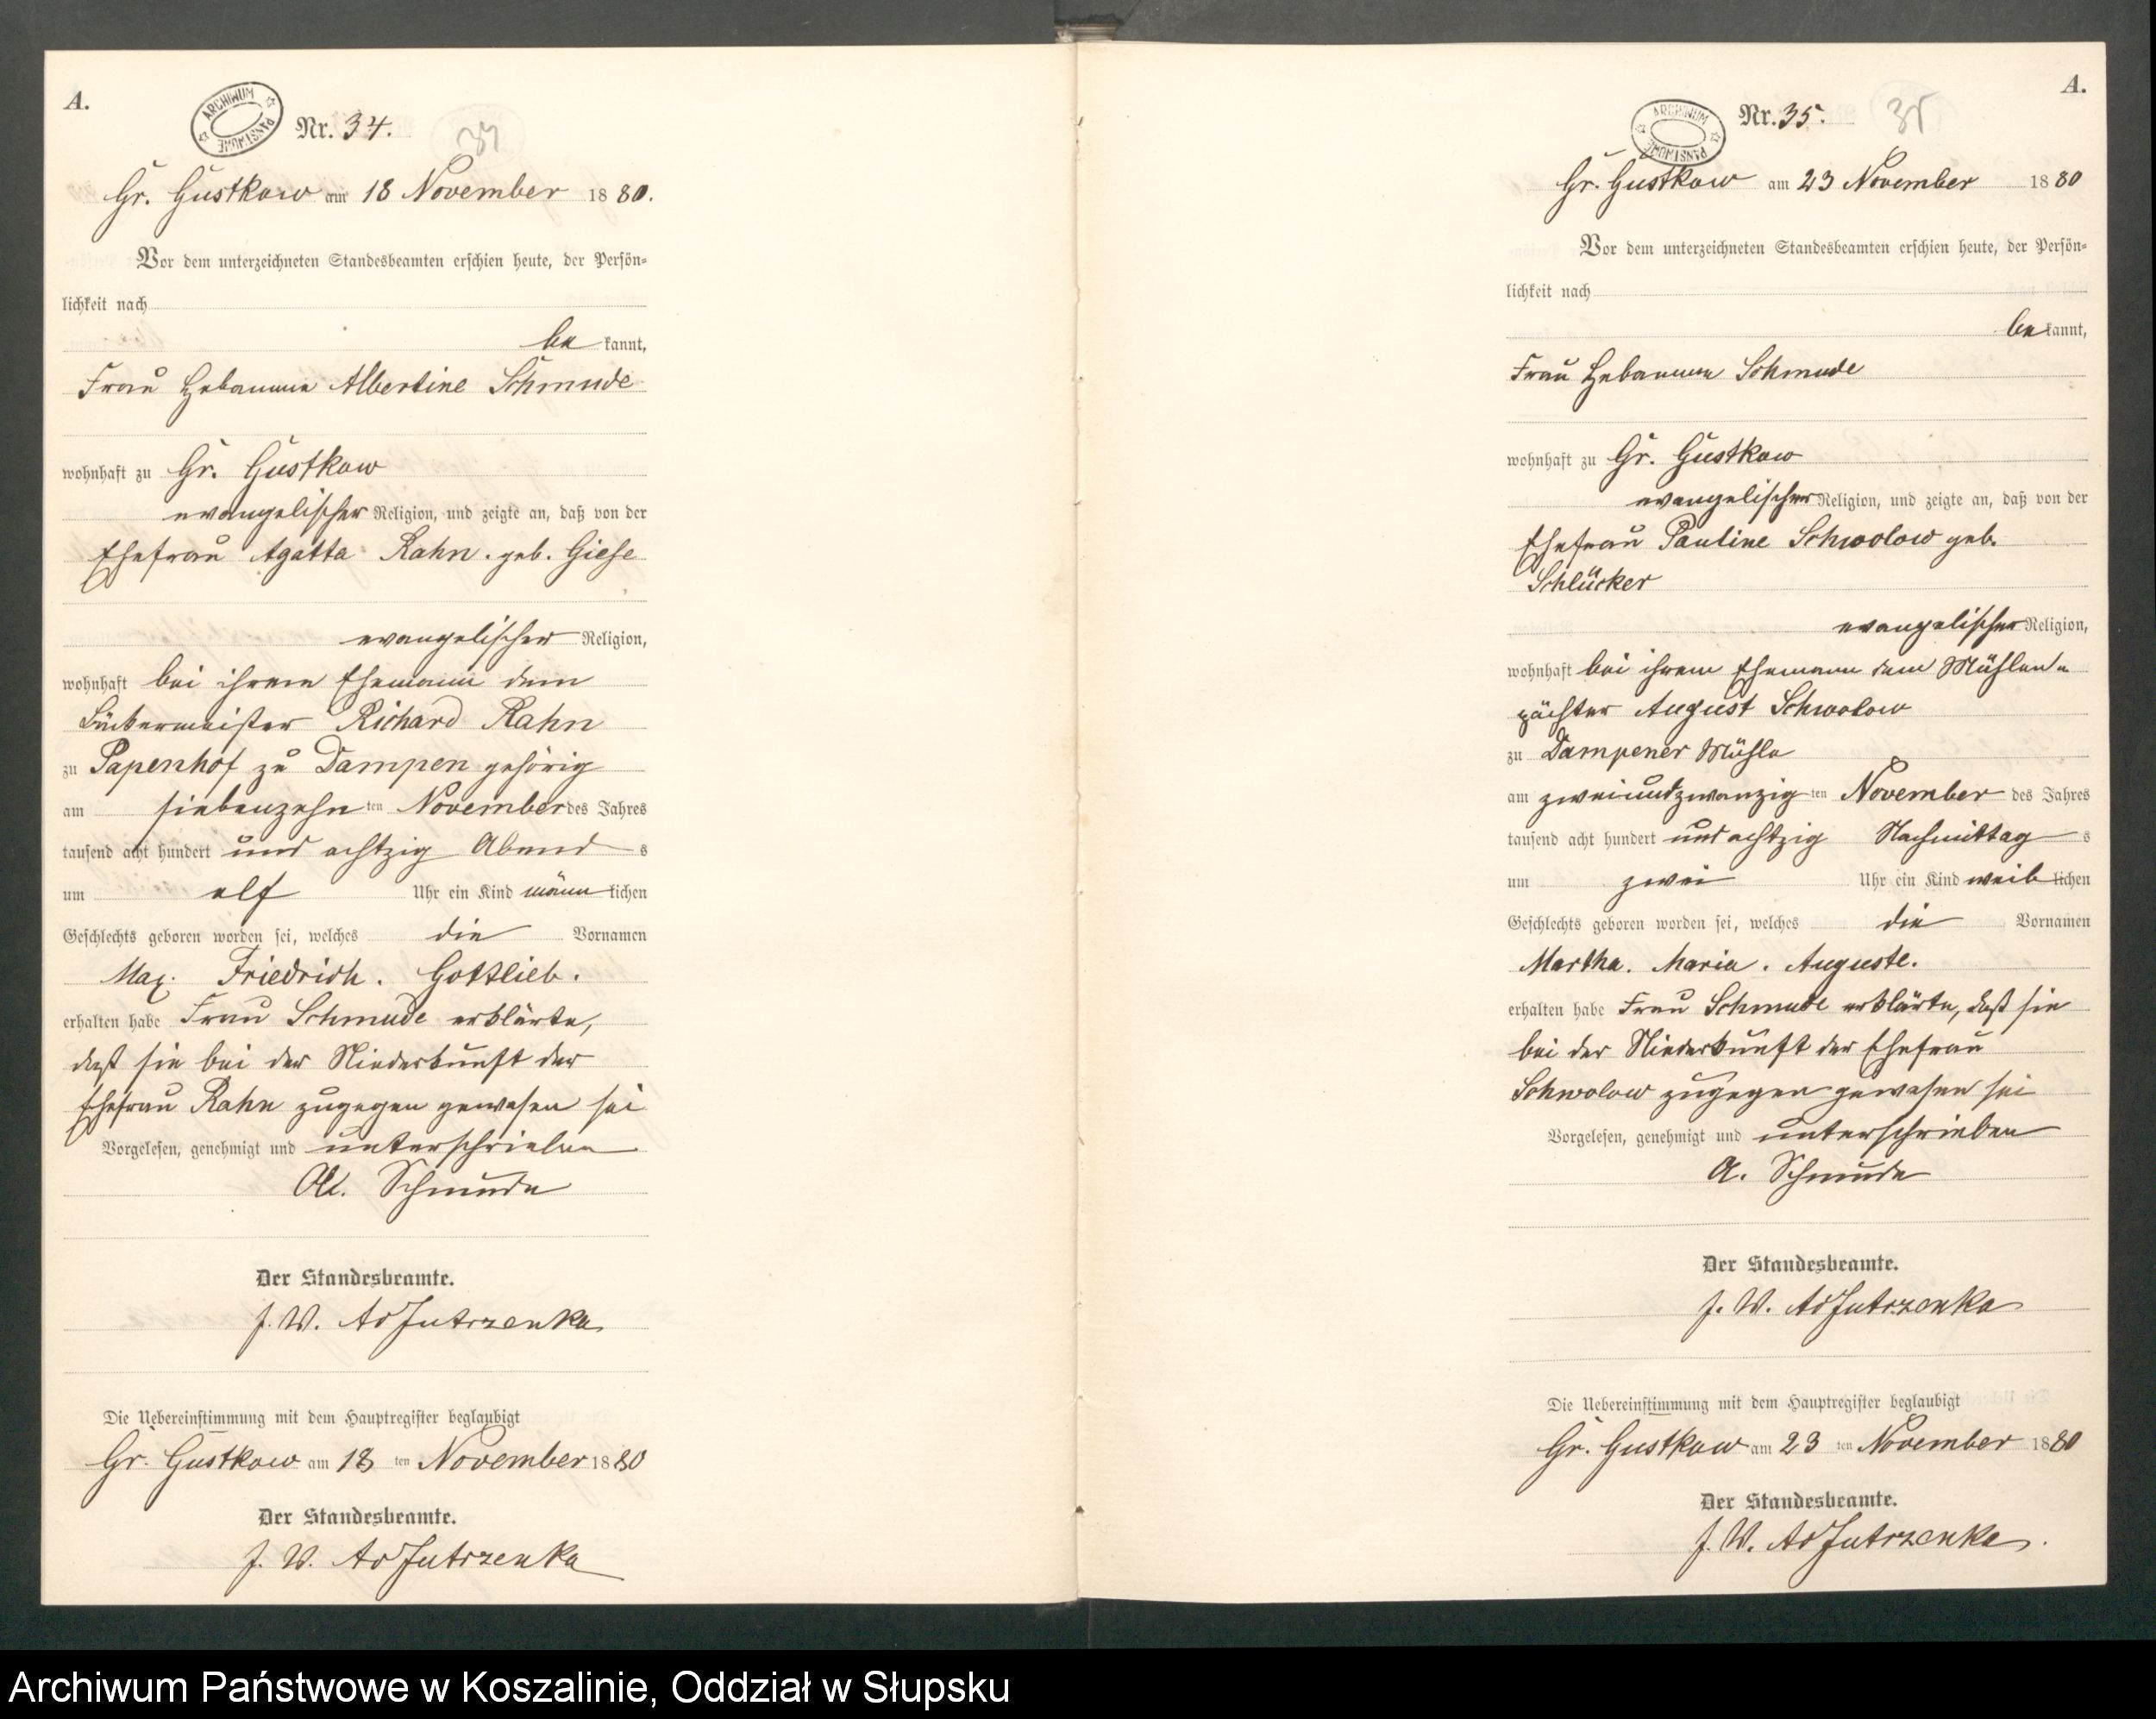 A.
ARCHIWUM PAŃSTWOWE
Nr. 34.
34
Gr. Gustkow am 18 November 1880.
Vor dem unterzeichneten Standesbeamten erschien heute, der Persön-
lichkeit nach
be kannt,
Frau Hebamme Albertine Schmude
wohnhaft zu Gr. Gustkow
evangelischer Religion, und zeigte an, daß von der
Ehefrau Agatta Rahn. geb. Giese
evangelischer Religion,
wohnhaft bei ihrem Ehemann dem
Richard Rahn
zu Papenhof zu Dampen gehörig
am siebenzehn ten November des Jahres
tausend acht hundert und achtzig Abend s
um elf Uhr ein Kind männ lichen
Geschlechts geboren worden sei, welches die Vornamen
Max. Friedrich. Gottlieb.
erhalten habe Frau Schmude erklärte,
daß sie bei der Niederkunft der
Ehefrau Rahn zugegen gewesen sei
Vorgelesen, genehmigt und unterschrieben
Alb. Schmude
Der Standesbeamte.
J. W. Ad Jutrzenka
Die Uebereinstimmung mit dem Hauptregister beglaubigt
Gr. Gustkow am 18 ten November 1880
Der Standesbeamte.
J. W. Ad Jutrzenka
A.
ARCHIWUM PAŃSTWOWE
Nr. 35.
35
Gr. Gustkow am 23 November 1880
Vor dem unterzeichneten Standesbeamten erschien heute, der Persön-
lichkeit nach
be kannt,
Frau Hebamme Schmude
wohnhaft zu Gr. Gustkow
evangelischer Religion, und zeigte an, daß von der
Ehefrau Pauline Schwolow geb.
Schlücker
evangelischer Religion,
wohnhaft bei ihrem Ehemann dem Mühlen-
pächter August Schwolow
zu Dampener Mühle
am zweiundzwanzig ten November des Jahres
tausend acht hundert und achtzig Nachmittag s
um zwei Uhr ein Kind weib lichen
Geschlechts geboren worden sei, welches die Vornamen
Martha. Maria. Auguste.
erhalten habe Frau Schmude erklärte, daß sie
bei der Niederkunft der Ehefrau
Schwolow zugegen gewesen sei
Vorgelesen, genehmigt und unterschrieben
A. Schmude
Der Standesbeamte.
J. W. Ad Jutrzenka
Die Uebereinstimmung mit dem Hauptregister beglaubigt
Gr. Gustkow am 23 ten November 1880
Der Standesbeamte.
J. W. Ad Jutrzenka.
Archiwum Państwowe w Koszalinie, Oddział w Słupsku